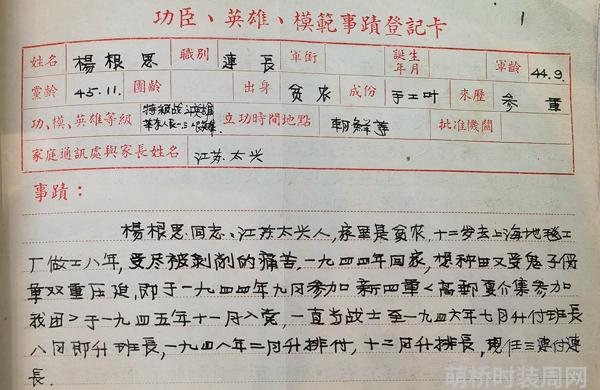 功臣、英雄、模範事蹟登記卡
1
姓名 楊根思 職別 連長 軍銜 誕生年月 軍齡 44.9.
黨齡 45.11. 團齡 出身 貧农 成份 手工叶 來歷 参軍
功、模、英雄等級 特級战斗英雄 立功時間地點 朝鮮等 批准機關
家庭通訊處與家長姓名 江苏太兴
事蹟：
楊根思同志、江苏太兴人，家里是贫农，十二岁去上海地毯工
厂做工八年，受尽被剥削的痛苦，一九四四年回家，想种田又受鬼子伪
軍双重压迫，即于一九四四年九月参加新四軍<高邮夏介集参加
我团>于一九四五年十一月入党，一直当战士至一九四六年七月升付班長
八月即升班長，一九四八年二月升排付，十二月升排長，現任三連付連
長.
萌桥时装周网